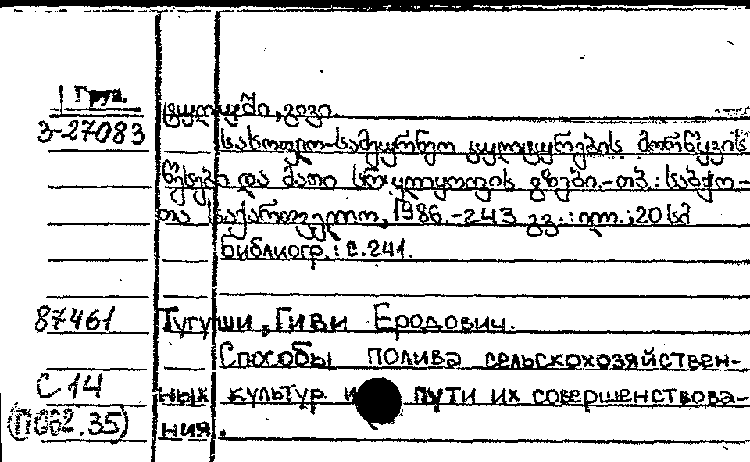 Груз.
ტუღუში, გივი.
3-27083
სასოფლო-სამეურნეო კულტურების მორწყვის
წესები და მათი სრულყოფის გზები.-თბ.: საბჭო-
თა საქართველო, 1986.-243 გვ.: ილ.; 20 სმ
Библиогр.: с.241.
87461 Тугуши, Гиви Еродович.
Способы полива сельскохозяйствен-
С 14 ных культур и пути их совершенствова-
ния.